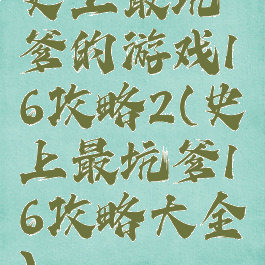 史上最坑
爹的游戏1
6攻略2(史
上最坑爹1
6攻略大全
)